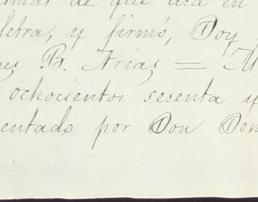 de que usa en
letra, y firmó, Doy
B. Arias =
ochocientos sesenta y
entado por Don Don